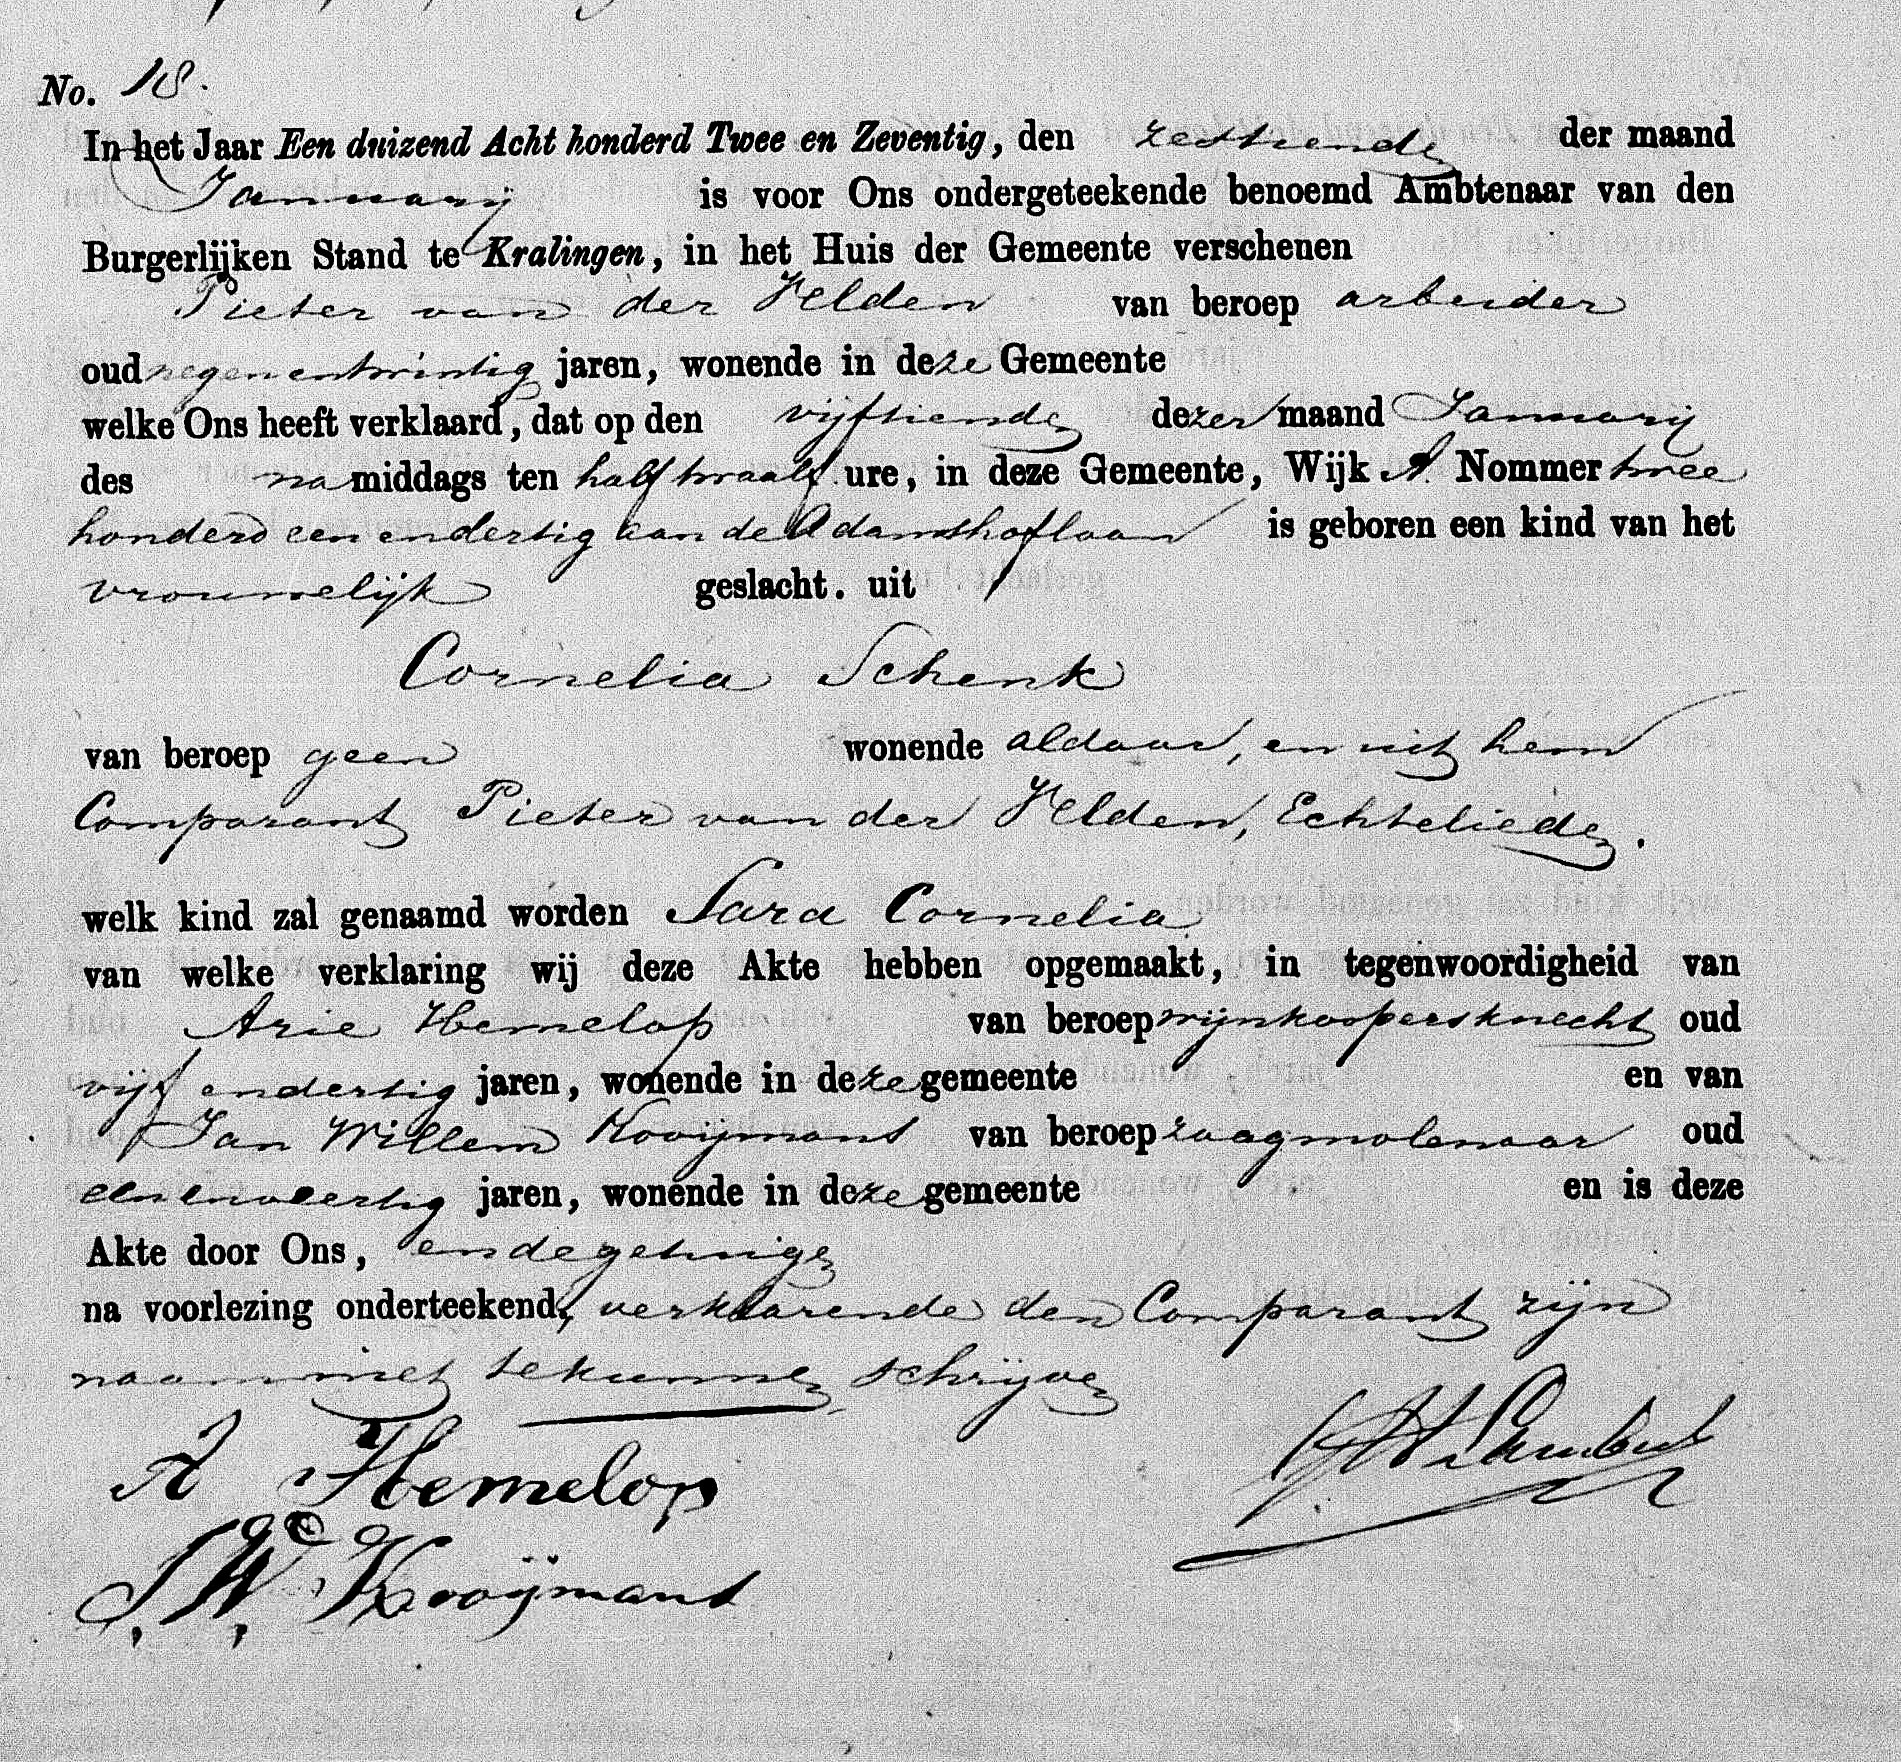 No. 18.
In het Jaar Een duizend Acht honderd Twee en Zeventig, den zestiende der maand
Januarij is voor Ons ondergeteekende benoemd Ambtenaar van den
Burgerlijken Stand te Kralingen, in het Huis der Gemeente verschenen
Pieter van der Velden van beroep arbeider
oud negenentwintig jaren, wonende in deze Gemeente
welke Ons heeft verklaard, dat op den vijftiende dezer maand Januarij
des namiddags ten half twaalf ure, in deze Gemeente, Wijk A Nommer twee
honderd een endertig aan de Adamshoflaan is geboren een kind van het
vrouwelijk geslacht. uit
Cornelia Schenk
van beroep geen wonende aldaar, en uit hem
Comparant Pieter van der Velden, Echteliede.
welk kind zal genaamd worden Sara Cornelia
van welke verklaring wij deze Akte hebben opgemaakt, in tegenwoordigheid van
Arie Hemelop van beroep wijnkoopersknecht oud
vijf endertig jaren, wonende in deze gemeente en van
Jan Willem Kooijmans van beroep zaagmolenaar oud
eenenveertig jaren, wonende in deze gemeente en is deze
Akte door Ons, en de getuigen
na voorlezing onderteekend, verklarende den Comparant zijn
naam niet te kunnen schrijven
A Hemelop
J. W. Kooijmans